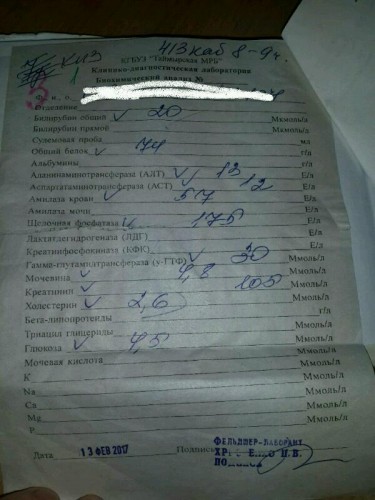 КИЗ 413 каб 8-9ч.
1
КГБУЗ "Таймырская МРБ"
Клинико-диагностическая лаборатория
Биохимический анализ №
Ф., и., о.
Отделение
Билирубин общий 20 Мкмоль/л
Билирубин прямой Мкмоль/л
Сулемовая проба мл
Общий белок 74 г/л
Альбумины г/л
Аланинаминотрансфераза (АЛТ) 13 Е/л
Аспартатаминотрансфераза (АСТ) 12 Е/л
Амилаза крови 57 Е/л
Амилаза мочи Е/л
Щелочная фосфатаза 175 Е/л
Лактатдегидрогеназа (ЛДГ) Е/л
Креатинфосфокиназа (КФК) Е/л
Гамма-глутамилтрансфераза (γ-ГТФ) 30 Ммоль/л
Мочевина 4,8 Ммоль/л
Креатинин 105 Ммоль/л
Холестерин 2,6 Ммоль/л
Бета-липопротеиды г/л
Триацил глицериды Ммоль/л
Глюкоза 4,5 Ммоль/л
Мочевая кислота Ммоль/л
K Ммоль/л
Na Ммоль/л
Ca Ммоль/л
Mg Ммоль/л
P Ммоль/л
Дата 13 ФЕВ 2017 Подпись ФЕЛЬДШЕР-ЛАБОРАНТ